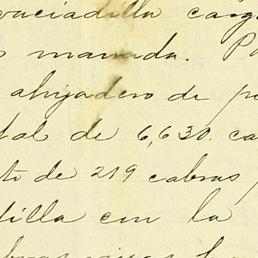 vaciadilla carg
manada. Pa
ahijadero de p
tal de 6,630 ca
to de 219 cabras
dilla con la